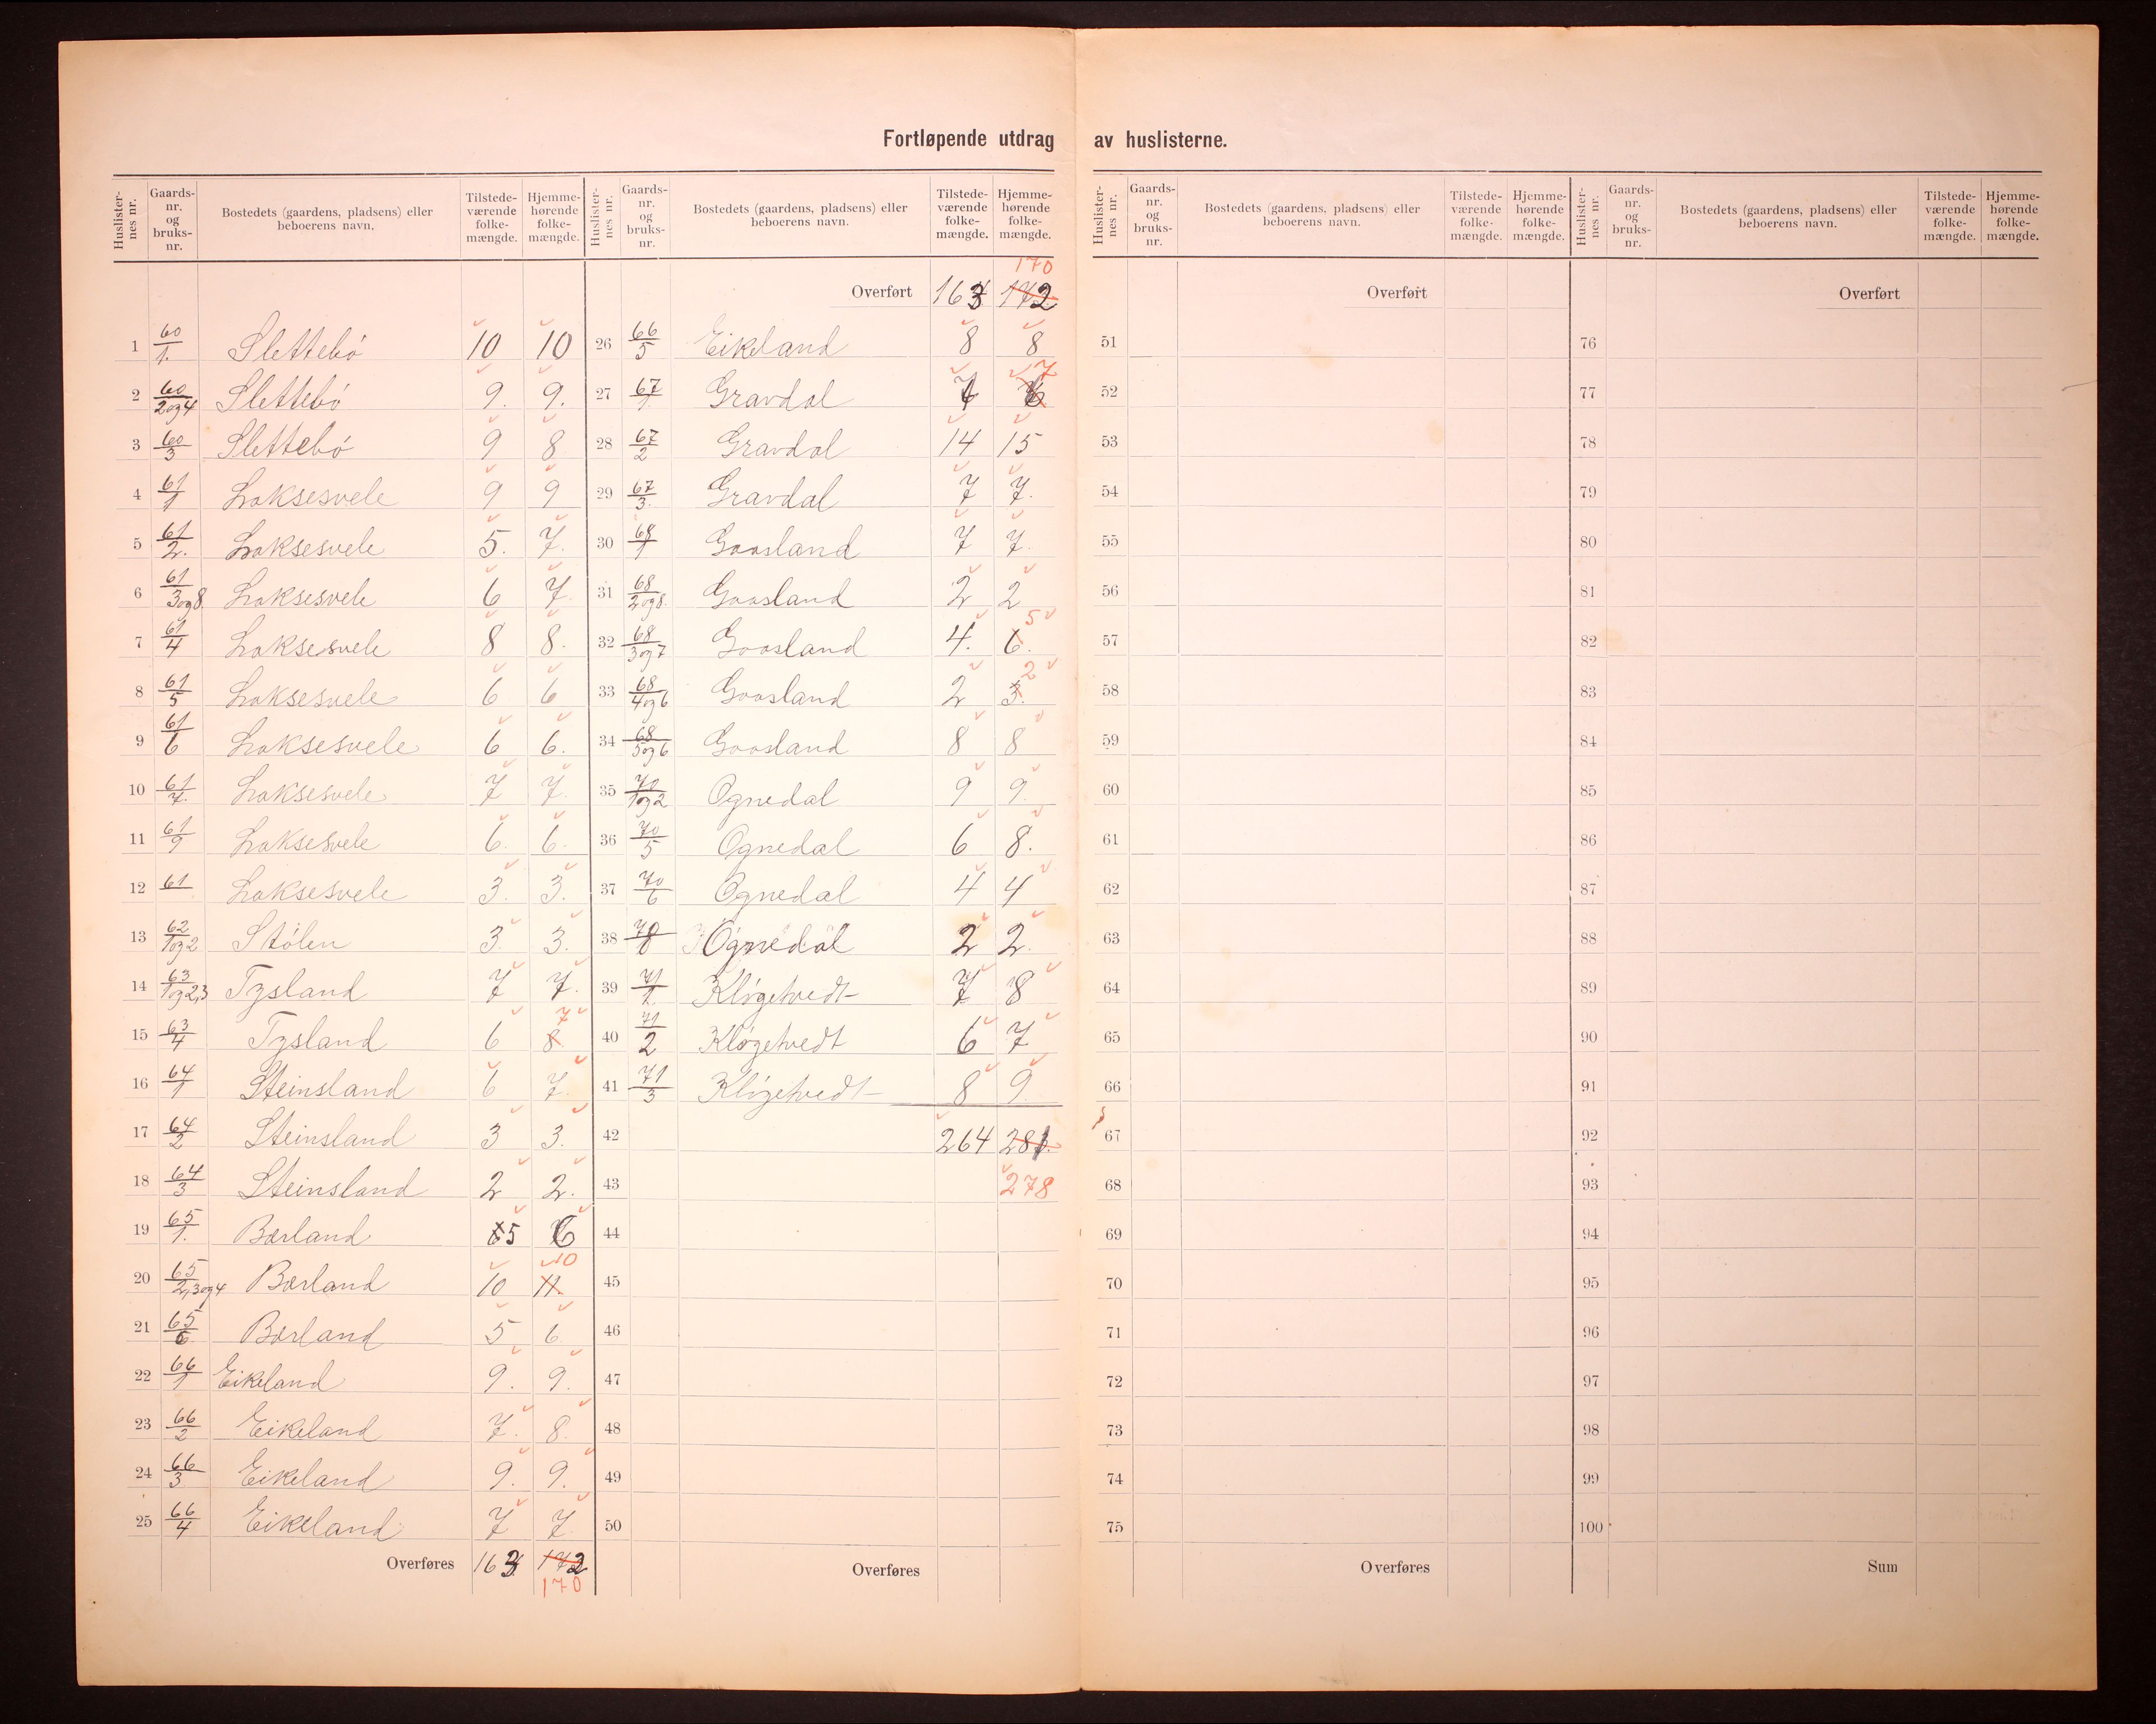 Fortløpende utdrag av huslisterne.
Huslisternes nr. Gaards-nr. og bruks-nr. Bostedets (gaardens, pladsens) eller beboerens navn. Tilstede-værende folke-mængde. Hjemme-hørende folke-mængde.
1 60/1. Slettebø 10 10
2 60/2og4 Slettebø 9. 9.
3 60/3 Slettebø 9 8
4 61/1 Laksesvele 9 9
5 61/2. Laksesvele 5. 7.
6 61/3og8. Laksesvele 6 7.
7 61/4 Laksesvele 8 8.
8 61/5 Laksesvele 6 6
9 61/6 Laksesvele 6 6.
10 61/7. Laksesvele 7 7.
11 61/9 Laksesvele 6. 6.
12 61 Laksesvele 3. 3.
13 62/1og2 Stølen 3. 3.
14 63/1og2,3 Tysland 7 7.
15 63/4 Tysland 6 8 7
16 64/1 Steinsland 6 7
17 64/2 Steinsland 3 3.
18 64/3 Steinsland 2 2.
19 65/1. Børland 5 6
20 65/2,3og4 Børland 10 11. 10
21 65/6 Børland 5 6
22 66/1 Eikeland 9. 9.
23 66/2 Eikeland 7. 8.
24 66/3 Eikeland 9. 9.
25 66/4 Eikeland 7 7.
Overføres 163 172
170
Huslisternes nr. Gaards-nr. og bruks-nr. Bostedets (gaardens, pladsens) eller beboerens navn. Tilstede-værende folke-mængde. Hjemme-hørende folke-mængde.
170
Overført 163 172
26 66/5 Eikeland 8 8
27 67/1. Gravdal 7 6 7
28 67/2 Gravdal 14 15
29 67/3. Gravdal 7 7.
30 68/1 Gaasland 7 7.
31 68/2og8. Gaasland 2 2
32 68/3og7 Gaasland 4. 6. 5
33 68/4og6 Gaasland 2 3. 2
34 68/5og6 Gaasland 8 8
35 70/1og2 Ognedal 9 9.
36 70/5 Ognedal 6 8.
37 70/6 Ognedal 4 4
38 70/8 Ognedal 2 2.
39 71/1. Kløgetvedt 7 8
40 71/2 Kløgetvedt 6 7
41 71/3 Kløgetvedt 8 9.
42 264 281.
43 278
44
45
46
47
48
49
50
Overføres
Huslisternes nr. Gaards-nr. og bruks-nr. Bostedets (gaardens, pladsens) eller beboerens navn. Tilstede-værende folke-mængde. Hjemme-hørende folke-mængde.
Overført
51
52
53
54
55
56
57
58
59
60
61
62
63
64
65
66
67
68
69
70
71
72
73
74
75
Overføres
Huslisternes nr. Gaards-nr. og bruks-nr. Bostedets (gaardens, pladsens) eller beboerens navn. Tilstede-værende folke-mængde. Hjemme-hørende folke-mængde.
Overført
76
77
78
79
80
81
82
83
84
85
86
87
88
89
90
91
92
93
94
95
96
97
98
99
100
Sum